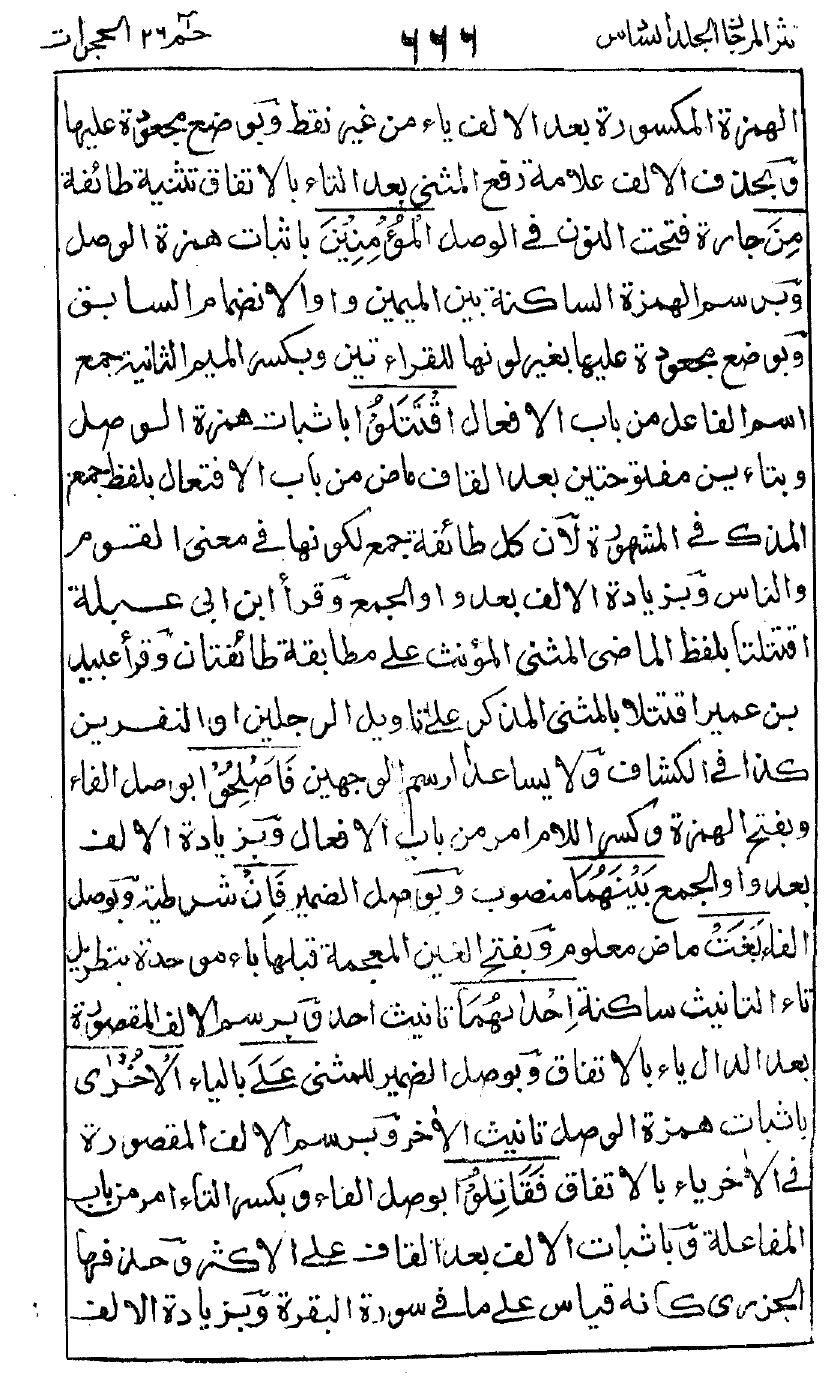 نثر المرجان الجلد السادس ٦٦٦ حٰم ٢٦ الحجرات
الهمزة المكسورة بعد الالف ياء من غير نقط وَبوضع مجعودة عليها
وَبحذف الالف علامة رفع المثنى بعد التاء بالاتفاق تثنية طائفة
مِنَ جارة فتحت النون في الوصل الْمُؤْمِنِيْنَ باثبات همزة الوصل
وَبرسم الهمزة الساكنة بين الميمين واوا لانضمام السابق
وَبوضع مجعودة عليها بغير لونها للقراءتين وبكسر الميم الثانية جمع
اسم الفاعل من باب الافعال اقْتَتَلُوْا باثبات همزة الوصل
وبتاءين مفتوحتين بعد القاف ماض من باب الافتعال بلفظ جمع
المذكر في المشهورة لَان كل طائفة جمع لكونها في معنى القوم
والناس وَبزيادة الالف بعد واو الجمع وَقرأ ابن ابى عبلة
اقتتلتا بلفظ الماضى المثنى المؤنث على مطابقة طائفتان وَقرأ عبيد
بن عمير اقتتلا بالمثنى المذكر على تاويل الرجلين او النفرين
كذا في الكشاف وَلا يساعد رسم الوجهين فَاَصْلِحُوْا بوصل الفاء
وبفتح الهمزة وكسر اللام امر من باب الافعال وَبزيادة الالف
بعد واو الجمع بَيْنَهُمَا منصوب وَبوصل الضمير فَاِنْ شرطية وَبوصل
الفاء بَغَتْ ماض معلوم وَبفتح الغين المعجمة قبلها باء موحدة بتطويل
تاء التانيث ساكنة اِحْدٰىهُمَا تانيث احد وَبرسم الالف المقصورة
بعد الدال ياء بالاتفاق وَبوصل الضمير للمثنى عَلَى بالياء الْاُخْرٰى
باثبات همزة الوصل تانيث الاٰخر وَبرسم الالف المقصورة
في الاٰخر ياء بالاتفاق فَقَاتِلُوْا بوصل الفاء وبكسر التاء امر من باب
المفاعلة وَباثبات الالف بعد القاف على الاكثر وَحذفها
الجزرى كانه قياس على ما في سورة البقرة وَبزيادة الالف